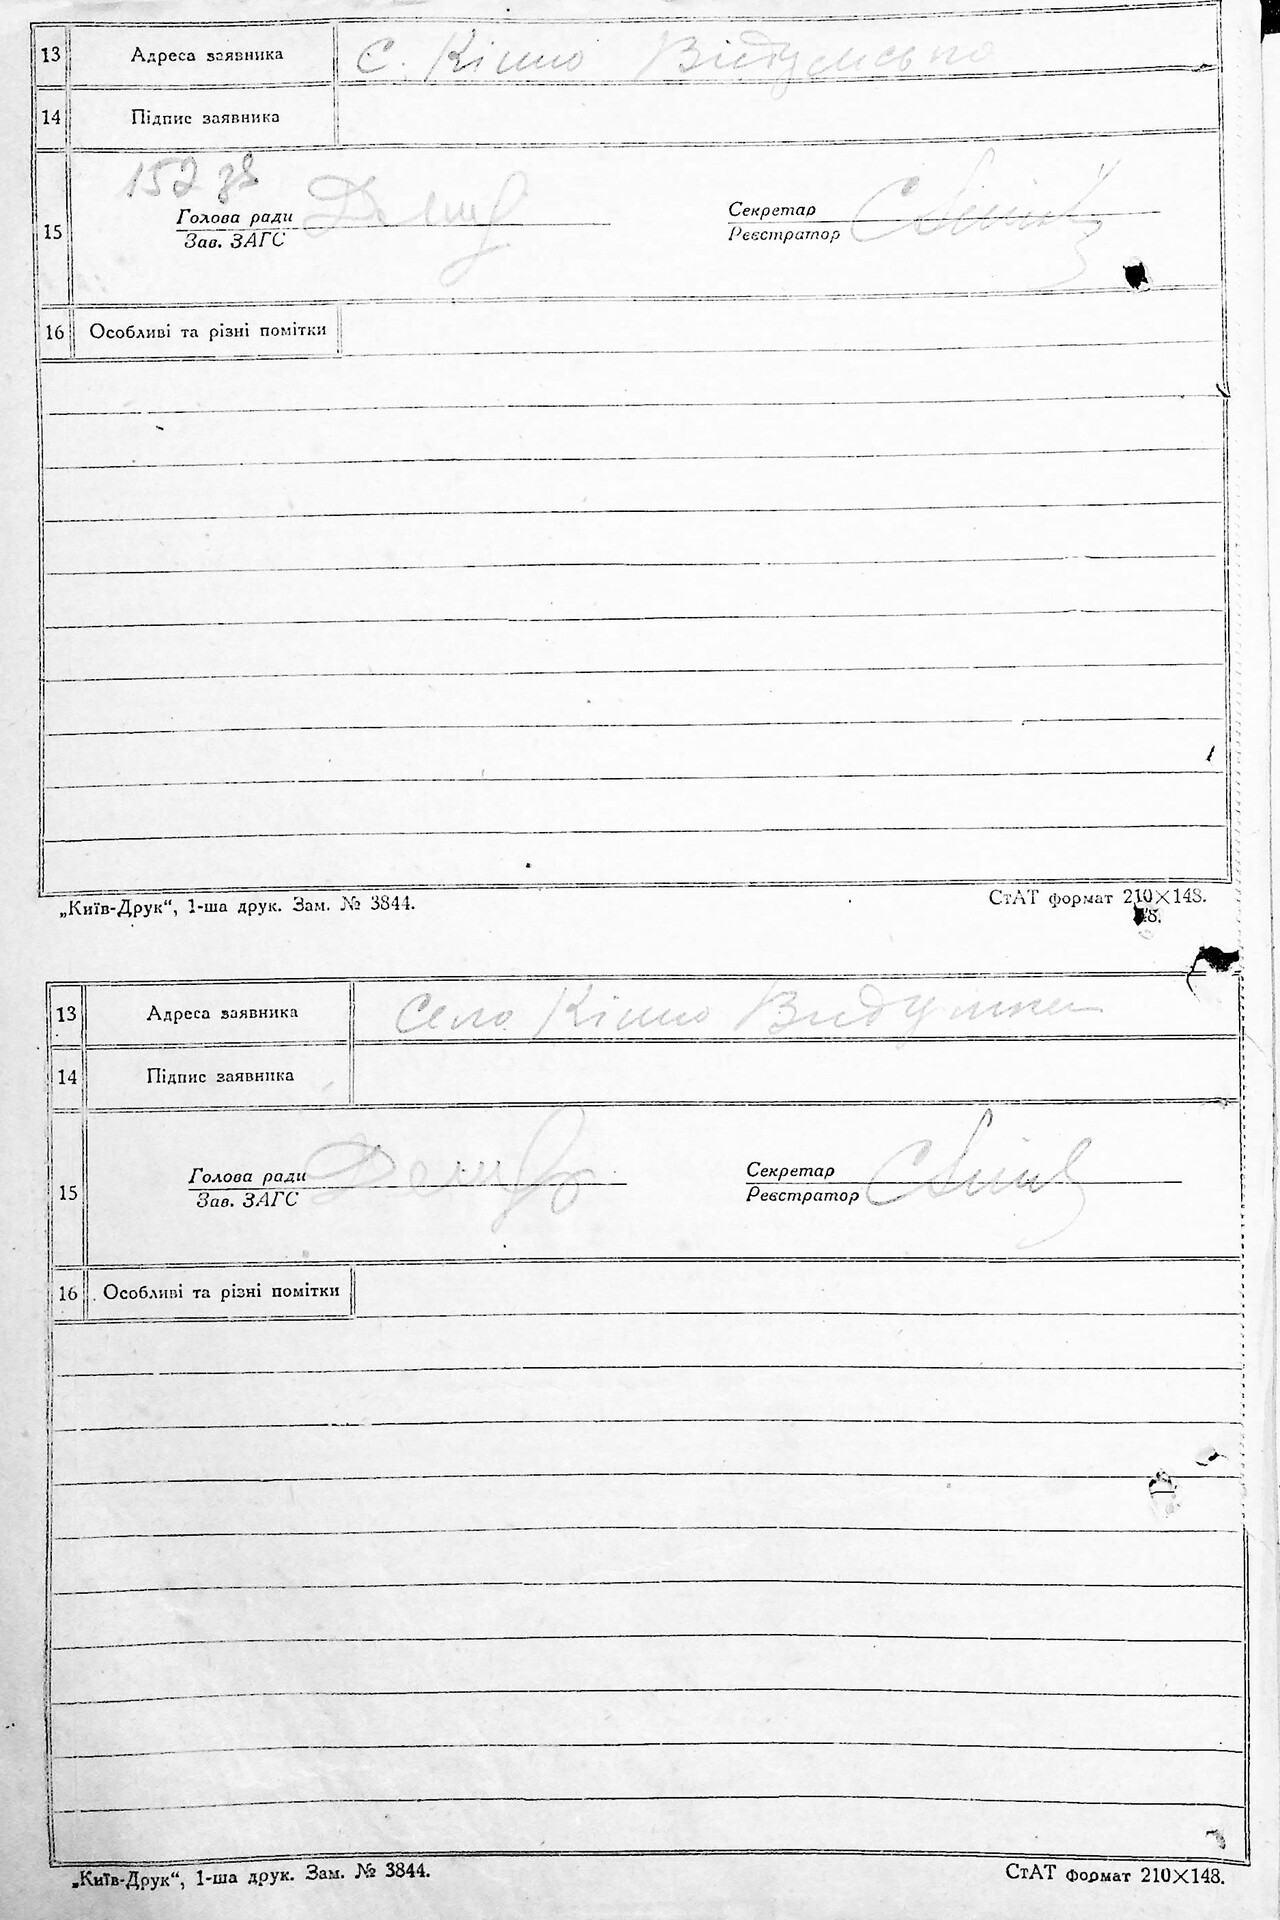 13 Адреса заявника С. Кішно
14 Підпис заявника
152 зв
15 Голова ради Секретар
Зав. ЗАГС Реєстратор
16 Особливі та різні помітки
„Київ-Друк“, 1-ша друк. Зам. № 3844. СтАТ формат 210×148.
48.
13 Адреса заявника Село Кішно Видумка
14 Підпис заявника
15 Голова ради Секретар
Зав. ЗАГС Реєстратор
16 Особливі та різні помітки
„Київ-Друк“, 1-ша друк. Зам. № 3844. СтАТ формат 210×148.